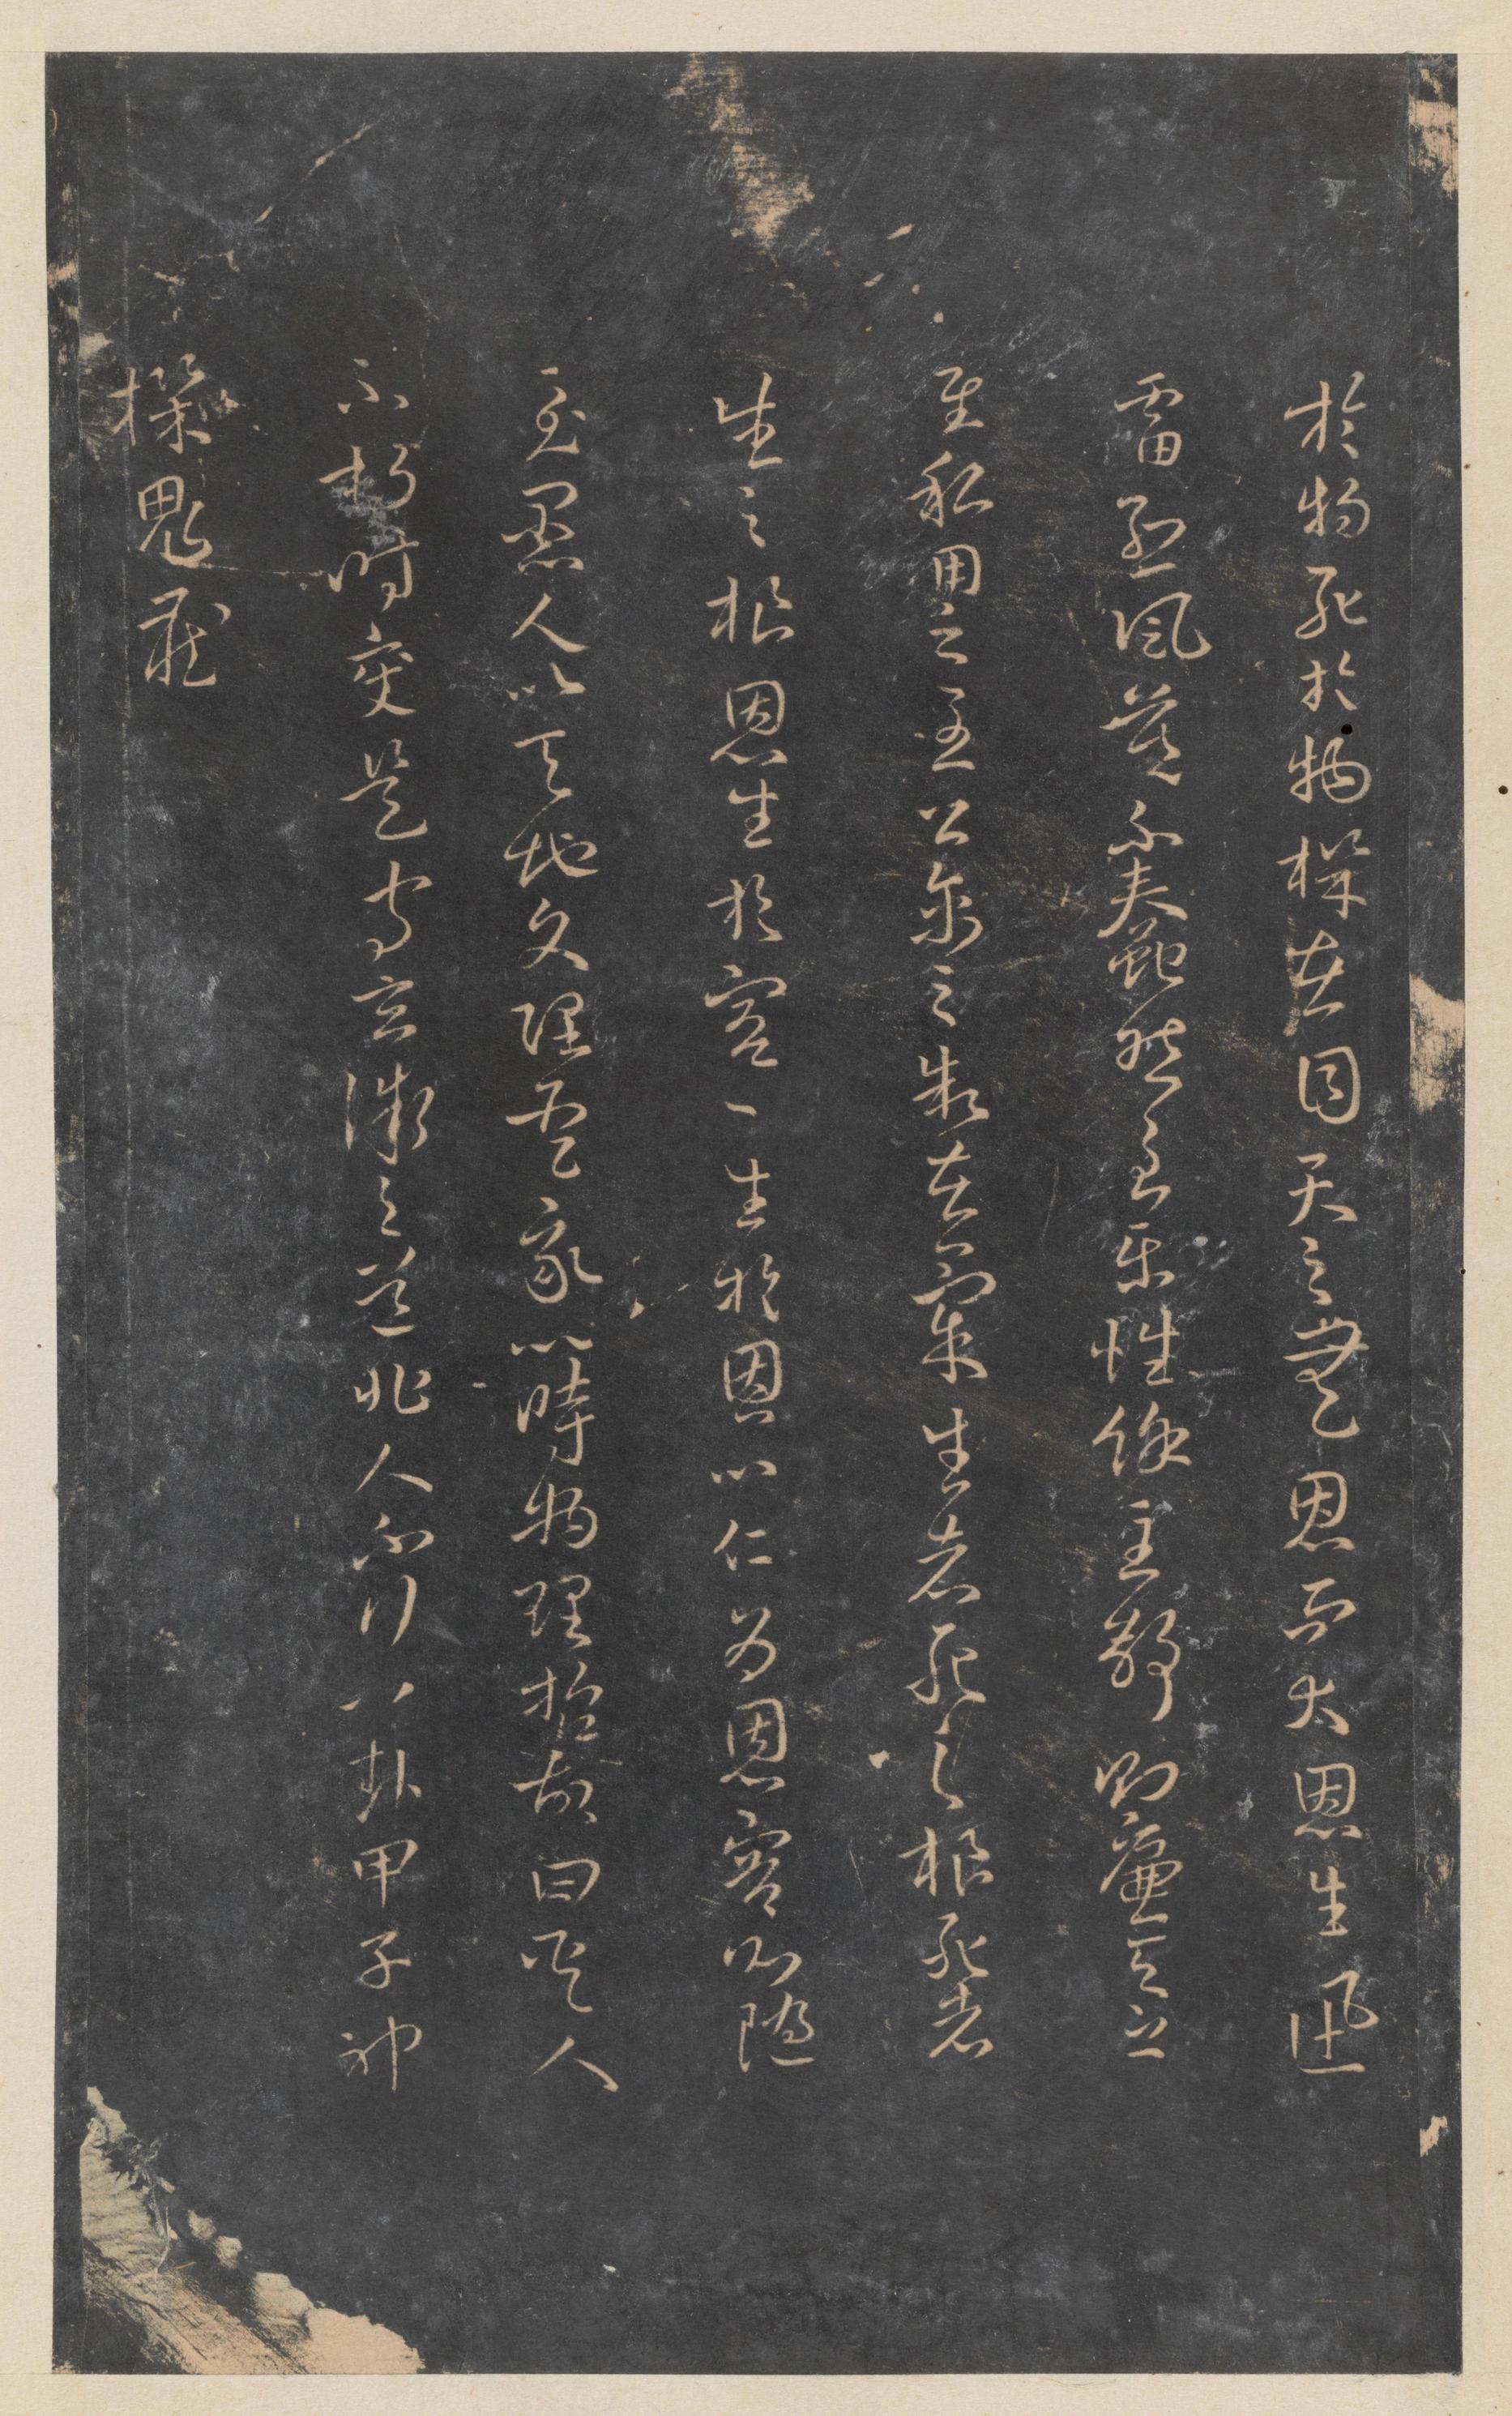 於物死於物機在目天之無恩而大恩生迅
雷烈風莫不夫蠢然至樂性餘至靜則廉天之
至私用之至公禽之制在氣生者死之根死者
生之根恩生於害々生於恩以仁為恩害則隨
至愚人以天地文理聖我以時物理哲故曰人
不朽時是玄微之道非人不行八卦甲子神
機鬼藏